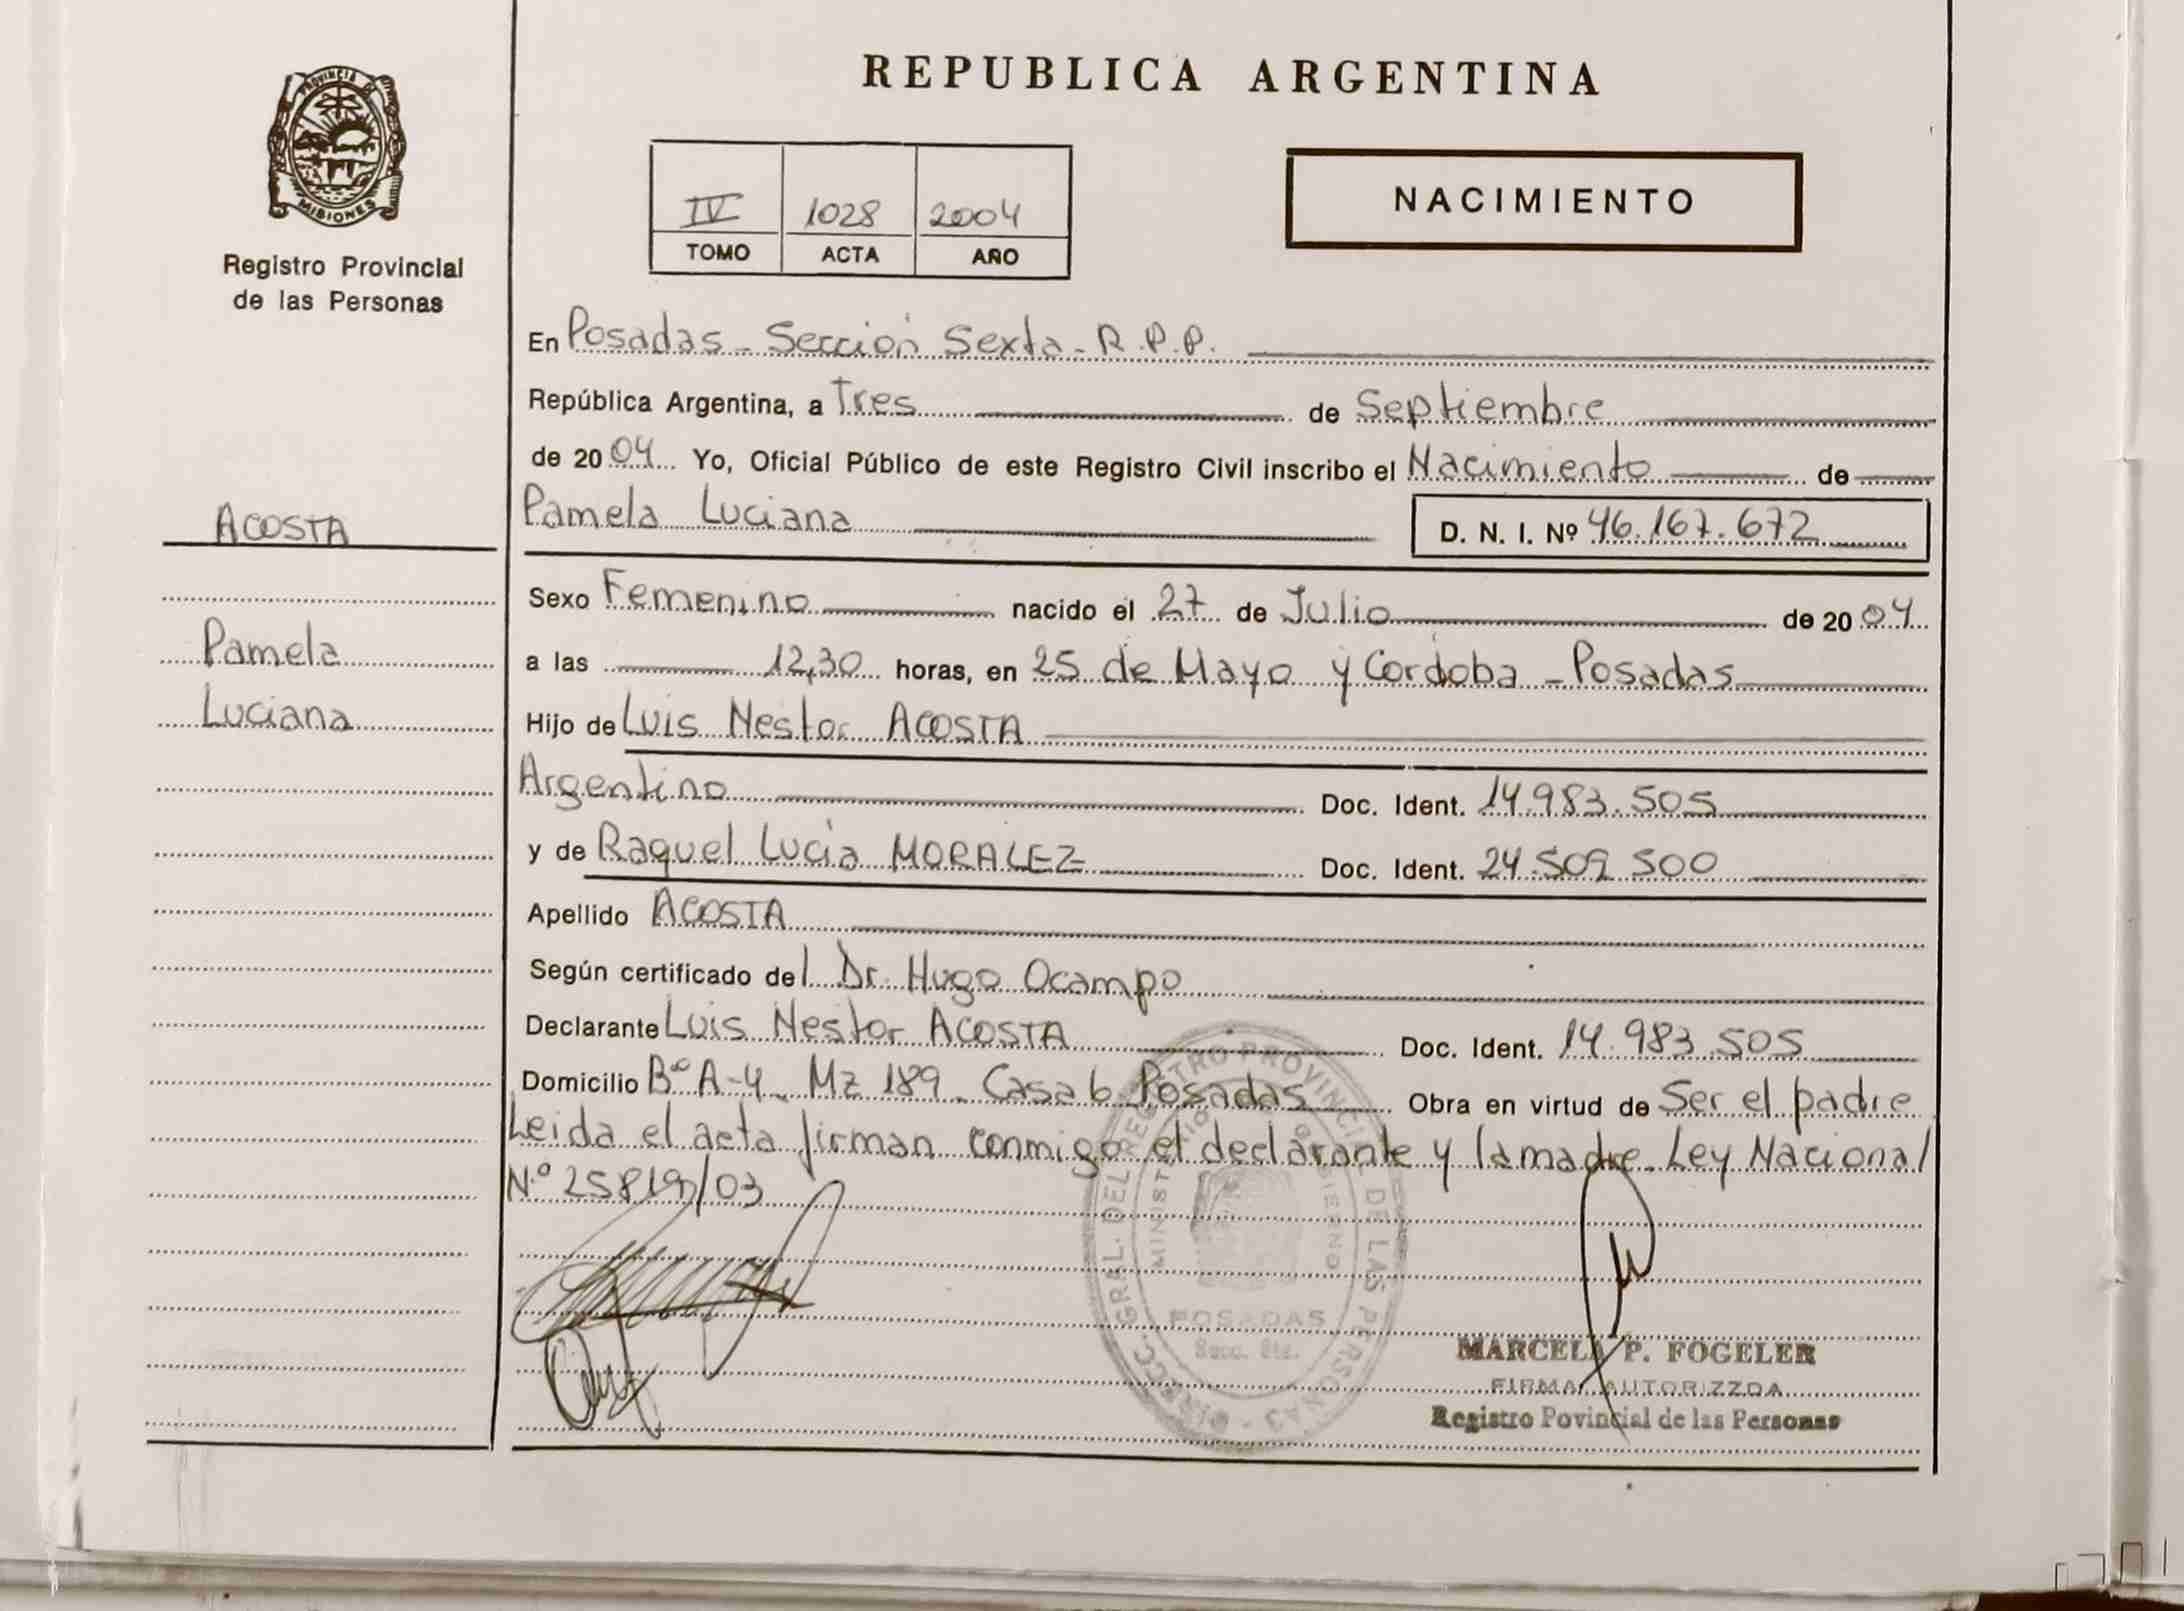 REPUBLICA ARGENTINA
PROVINCIA DE
MISIONES
Registro Provincial
de las Personas
NACIMIENTO
IV 1028 2004
TOMO ACTA AÑO
En Posadas - Sección Sexta - R.P.P.
República Argentina, a Tres de Septiembre
de 2004 Yo, Oficial Público de este Registro Civil inscribo el Nacimiento de
Pamela Luciana D. N. I. Nº 46.167.672
ACOSTA
Pamela
Luciana
Sexo Femenino nacido el 27 de Julio de 2004
a las 12,30 horas, en 25 de Mayo y Córdoba - Posadas
Hijo de Luis Nestor ACOSTA
Argentino Doc. Ident. 14.983.505
y de Raquel Lucia MORALEZ Doc. Ident. 24.509.500
Apellido ACOSTA
Según certificado del Dr. Hugo Ocampo
Declarante Luis Nestor ACOSTA Doc. Ident. 14.983.505
Domicilio Bº A-4 - Mz 189 - Casa 6 Posadas Obra en virtud de Ser el padre
Leida el acta firman conmigo el declarante y la madre. Ley Nacional
N.º 25819/03
DIRECC. GRAL. DEL REGISTRO PROVINCIAL DE LAS PERSONAS
POSADAS
MARCELA P. FOGELER
FIRMA AUTORIZZDA
Registro Povincial de las Personas